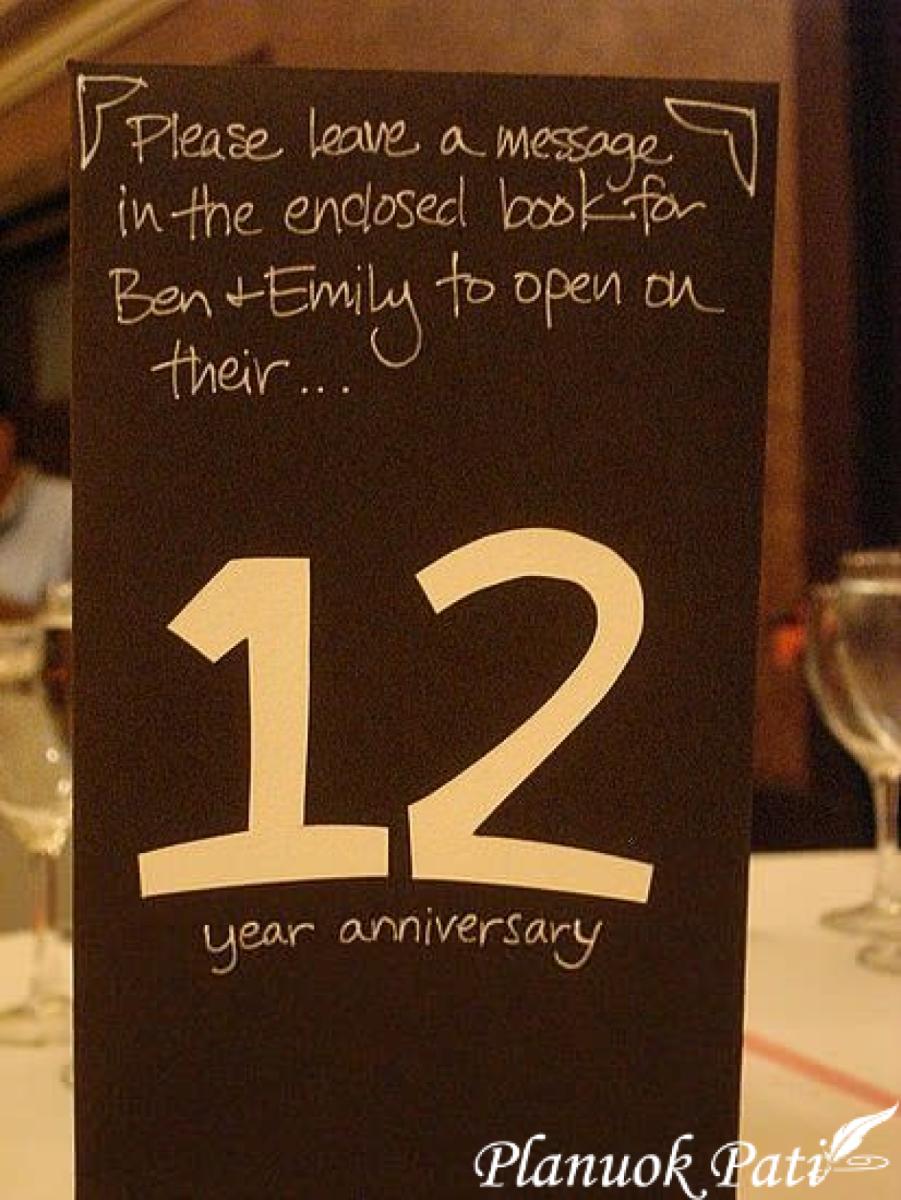 Please leave a message
in the enclosed book for
Ben + Emily to open on
their...
12
year anniversary
Planuok Pati